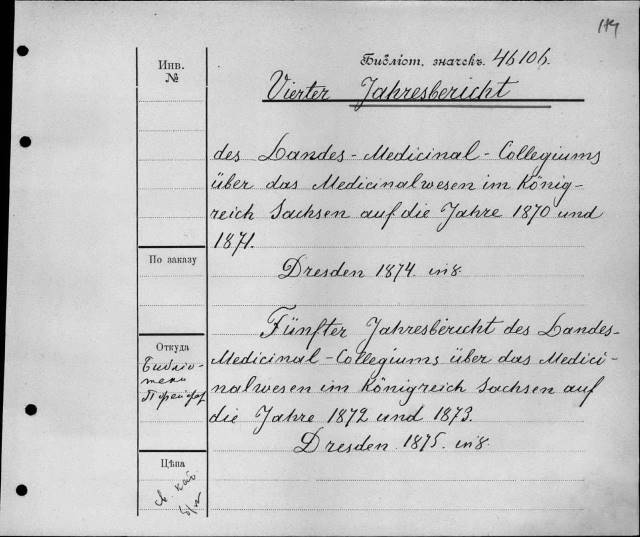 Библіот. значекъ. 46106.
Инв.
№
Vierter Jahresbericht
des Landes-Medicinal-Collegiums
über das Medicinalwesen im König-
reich Sachsen auf die Jahre 1870 und
1871.
По заказу
Dresden 1874. in 8.
Fünfter Jahresbericht des Landes-
Откуда
Medicinal-Collegiums über das Medici-
Библіо-
теки
nalwesen im Königreich Sachsen auf
die Jahre 1872 und 1873.
Dresden. 1875. in 8.
Цѣна